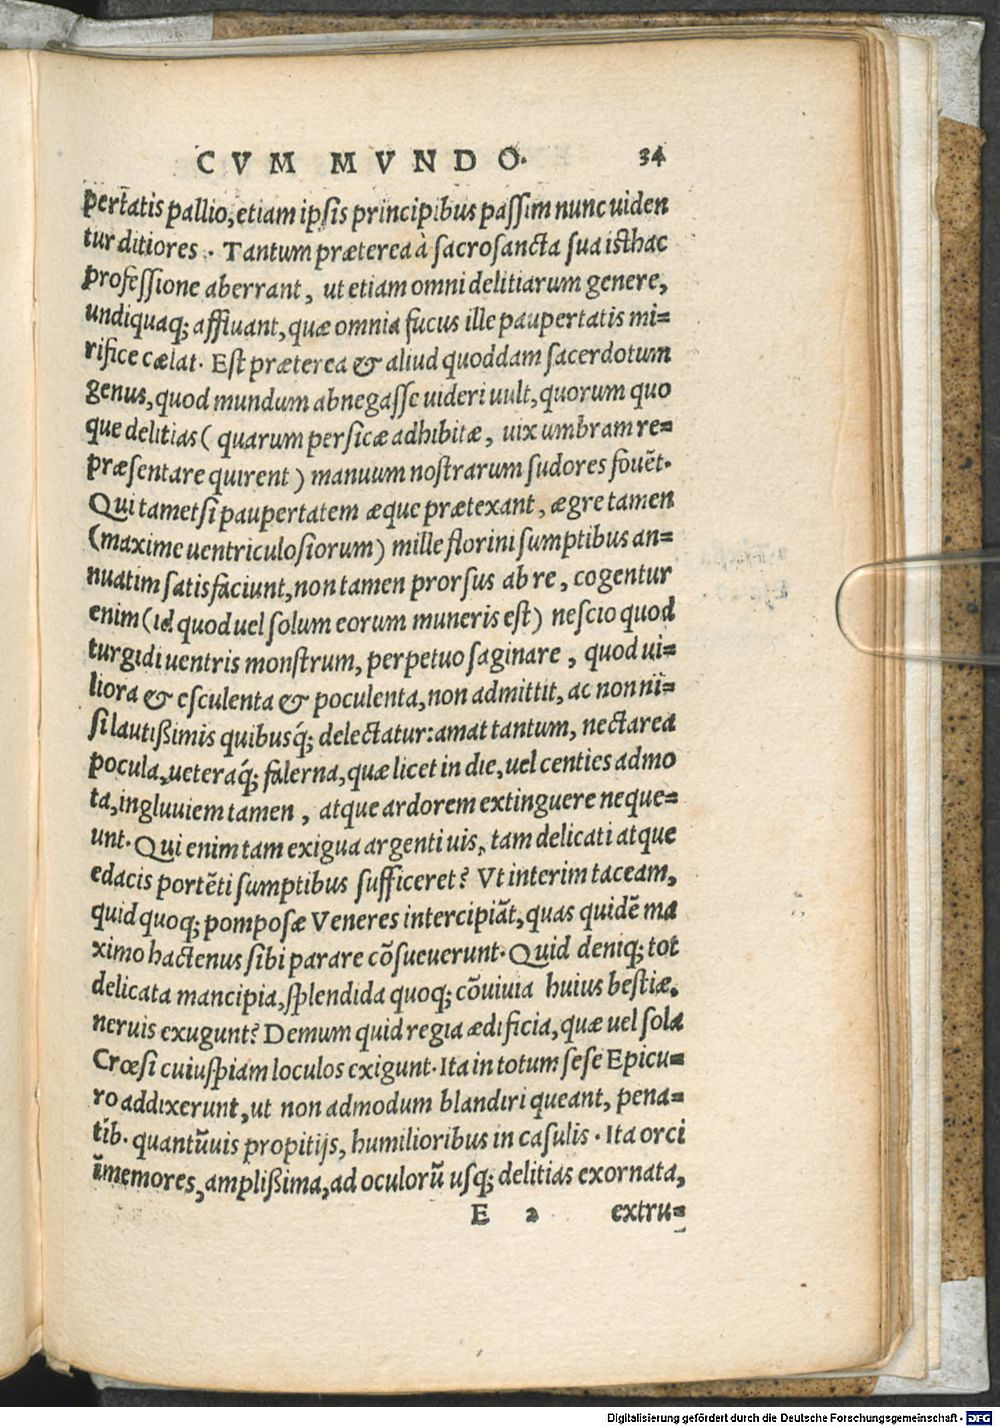 CVM MVNDO. 34
pertatis pallio, etiam ipsis principibus passim nunc uiden
tur ditiores. Tantum præterea à sacrosancta sua isthac
professione aberrant, ut etiam omni delitiarum genere,
undiquaq; affluant, quæ omnia fucus ille paupertatis mi=
rifice cælat. Est præterea & aliud quoddam sacerdotum
genus, quod mundum abnegasse uideri uult, quorum quo
que delitias (quarum persicæ adhibitæ, uix umbram re=
præsentare quirent) manuum nostrarum sudores fouẽt.
Qui tametsi paupertatem æque prætexant, ægre tamen
(maxime uentriculosiorum) mille florini sumptibus an=
nuatim satisfaciunt, non tamen prorsus ab re, cogentur
enim (id quod uel solum eorum muneris est) nescio quod
turgidi uentris monstrum, perpetuo saginare, quod ui=
liora & esculenta & poculenta, non admittit, ac non ni=
si lautißimis quibusq́; delectatur: amat tantum, nectarea
pocula, ueteraq́; falerna, quæ licet in die, uel centies admo
ta, ingluuiem tamen, atque ardorem extinguere neque=
unt. Qui enim tam exigua argenti uis, tam delicati atque
edacis portẽti sumptibus sufficeret? Vt interim taceam,
quid quoq; pomposæ Veneres intercipiãt, quas quidẽ ma
ximo hactenus sibi parare cõsueuerunt. Quid deniq; tot
delicata mancipia, splendida quoq; cõuiuia huius bestiæ.
neruis exugunt? Demum quid regia ædificia, quæ uel sola
Crœsi cuiuspiam loculos exigunt. Ita in totum sese Epicu=
ro addixerunt, ut non admodum blandiri queant, pena=
tib. quantũuis propitijs, humilioribus in casulis. Ita orci
ĩmemores, amplißima, ad oculorũ usq; delitias exornata,
E 2 extru=
Digitalisierung gefördert durch die Deutsche Forschungsgemeinschaft - DFG